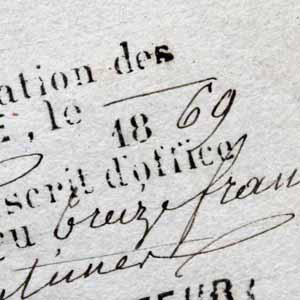 ation des
E, le
18 69
scrit d'office
çu treize fran
EUR